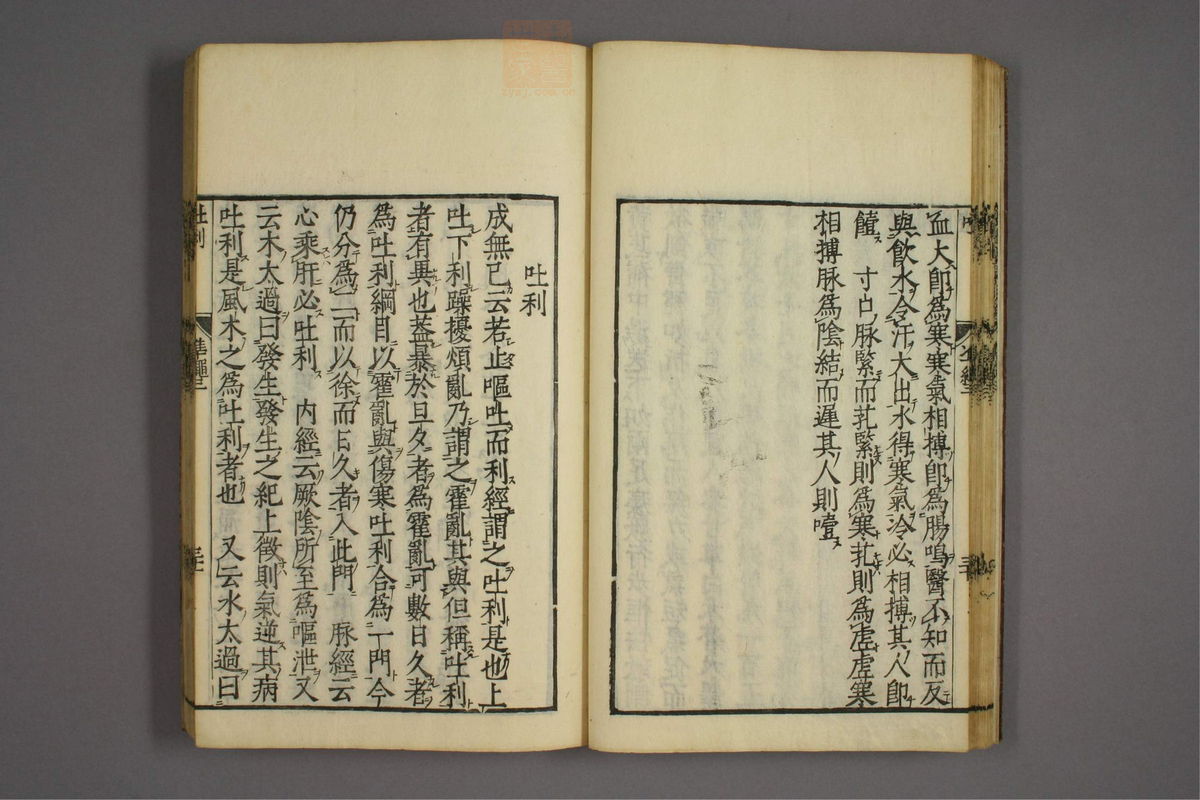 血大卽爲寒寒氣相搏卽爲腸鳴醫不知而反
與飮水令汗大出水得寒氣冷必相搏其人卽
饐 寸口脉緊而芤緊則爲寒芤則爲虛虛寒
相搏脉爲陰結而遲其人則噎
吐利
成無已云若止嘔吐而利經謂之吐利是也上
吐下利躁擾煩亂乃謂之霍亂其與但稱吐利
者有異也蓋暴於旦夕者爲霍亂可數日久者
爲吐利綱目以霍亂與傷寒吐利合爲一門今
仍分爲二而以徐而日久者入此門 脉經云
心乘肝必吐利 內經云厥陰所至爲嘔泄又
云木太過曰發生發生之紀上徵則氣逆其病
吐利是風木之爲吐利者也 又云水太過曰
吐利